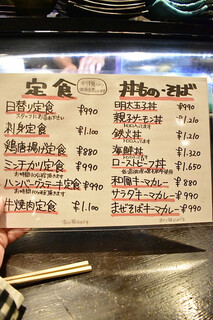 定食
日替り定食 ¥990
刺身定食 ¥1,100
鶏唐揚げ定食 ¥880
ミンチカツ定食 ¥990
ハンバーグステーキ定食 ¥990
牛焼肉定食 ¥1,100
丼もの・そば
明太玉子丼 ¥990
親子サーモン丼 ¥1,210
鉄火丼 ¥1,210
海鮮丼 ¥1,320
ローストビーフ丼 ¥1,650
和風キーマカレー ¥880
サラダキーマカレー ¥990
まぜそばキーマカレー ¥990